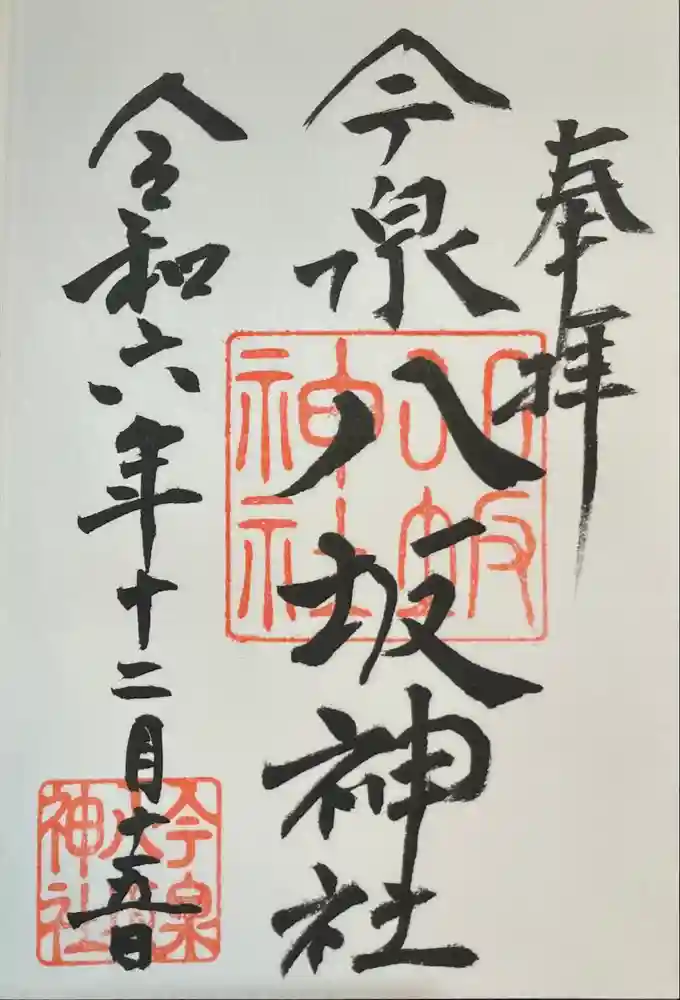 奉拝
今泉八坂神社
八坂神社
令和六年十二月十五日
今泉八坂神社